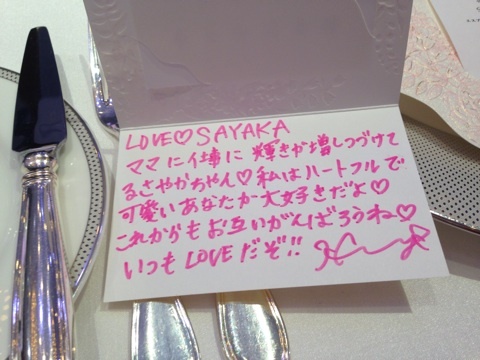 LOVE♡SAYAKA
ママに仕事に輝きが増しつづけて
るさやかちゃん♡私はハートフルで
可愛いあなたが大好きだよ♡
これからもお互いがんばろうね♡
いつもLOVEだぞ!!